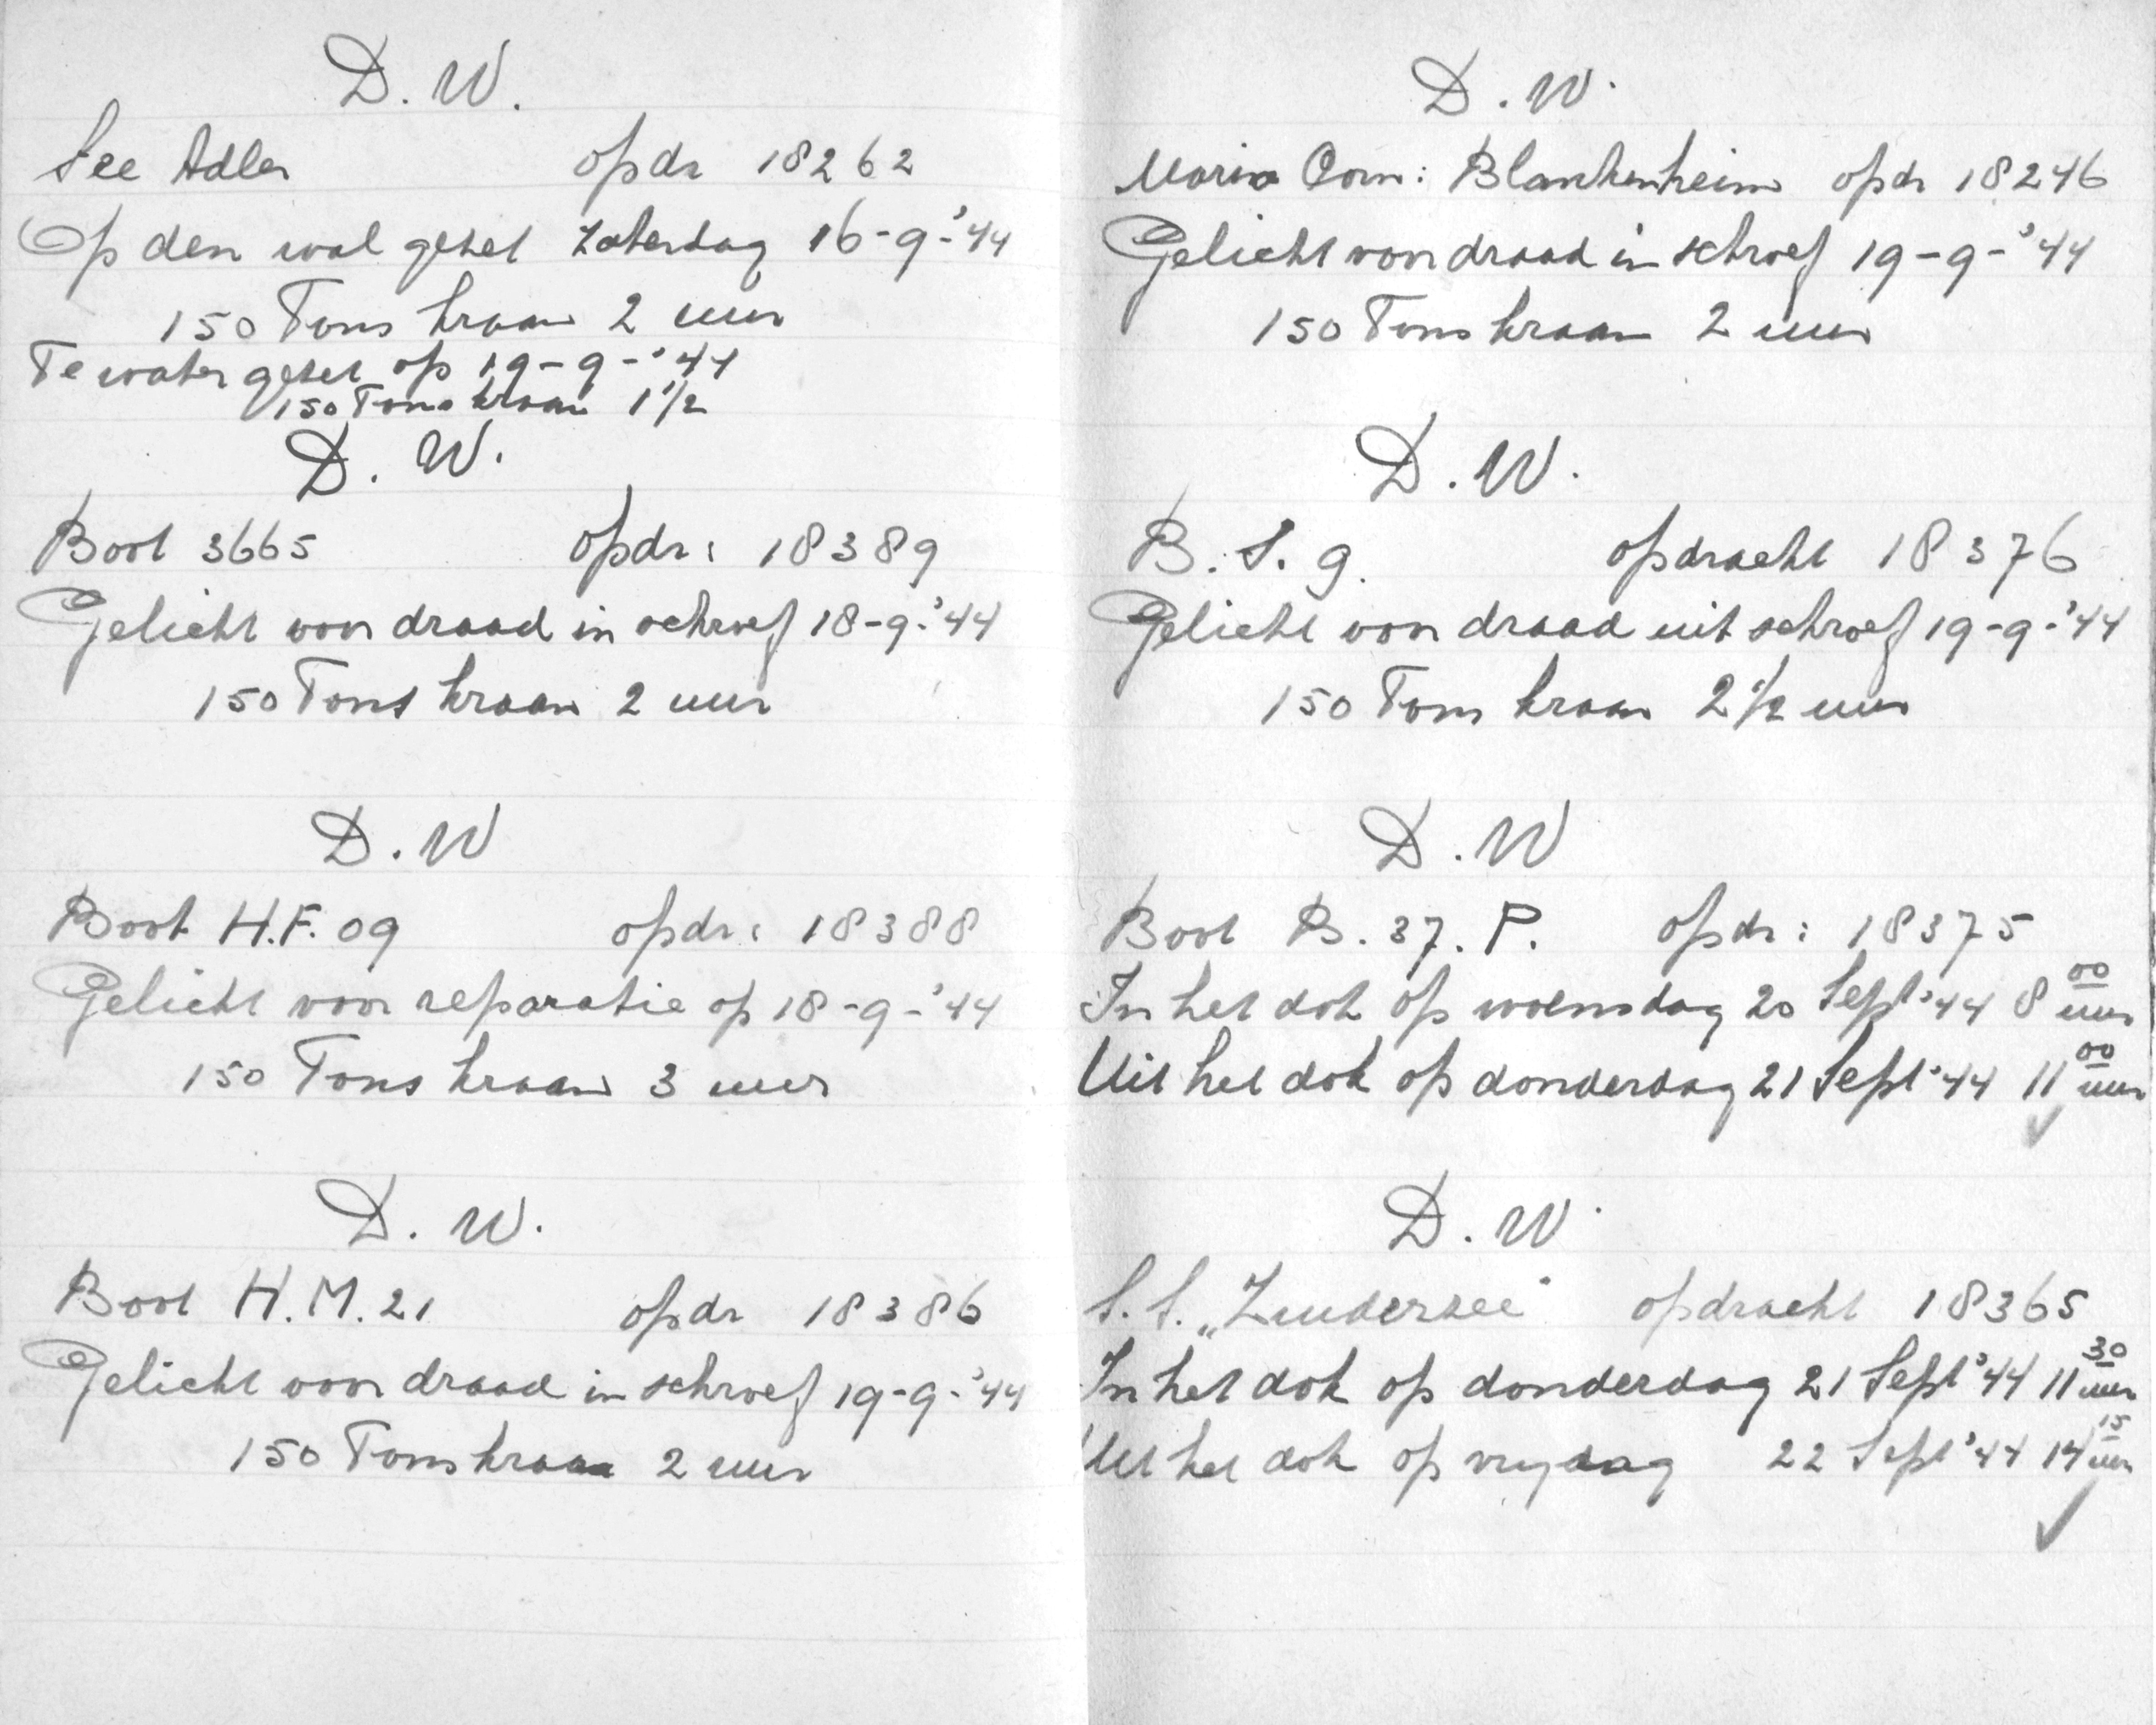 D. W.
See Adler opdr 18262
Op den wal gezet Zaterdag 16-9-'44
150 Tons kraan 2 uur
Te water gezet op 19-9-'44
150 Tons kraan 1 1/2
D. W.
Boot 3665 opdr: 18389
Gelicht voor draad in schroef 18-9-'44
150 Tons kraan 2 uur
D. W
Boot H.F. 09 opdr: 18388
Gelicht voor reparatie op 18-9-'44
150 Tons kraan 3 uur
D. W.
Boot H.M. 21 opdr 18386
Gelicht voor draad in schroef 19-9-'44
150 Tons kraan 2 uur
D. W.
Maria Corn: Blankenheim opdr 18246
Gelicht voor draad in schroef 19-9-'44
150 Tons kraan 2 uur
D. W.
B. S. 9. opdracht 18376
Gelicht voor draad uit schroef 19-9-'44
150 Tons kraan 2 1/2 uur
D. W
Boot B. 37. P. opdr: 18375
In het dok op woensdag 20 Sept '44 8 00 uur
Uit het dok op donderdag 21 Sept '44 11 00 uur
D. W.
S. S. „Zuiderzee" opdracht 18365
In het dok op donderdag 21 Sept '44 11 30 uur
Uit het dok op vrijdag 22 Sept '44 14 15 uur